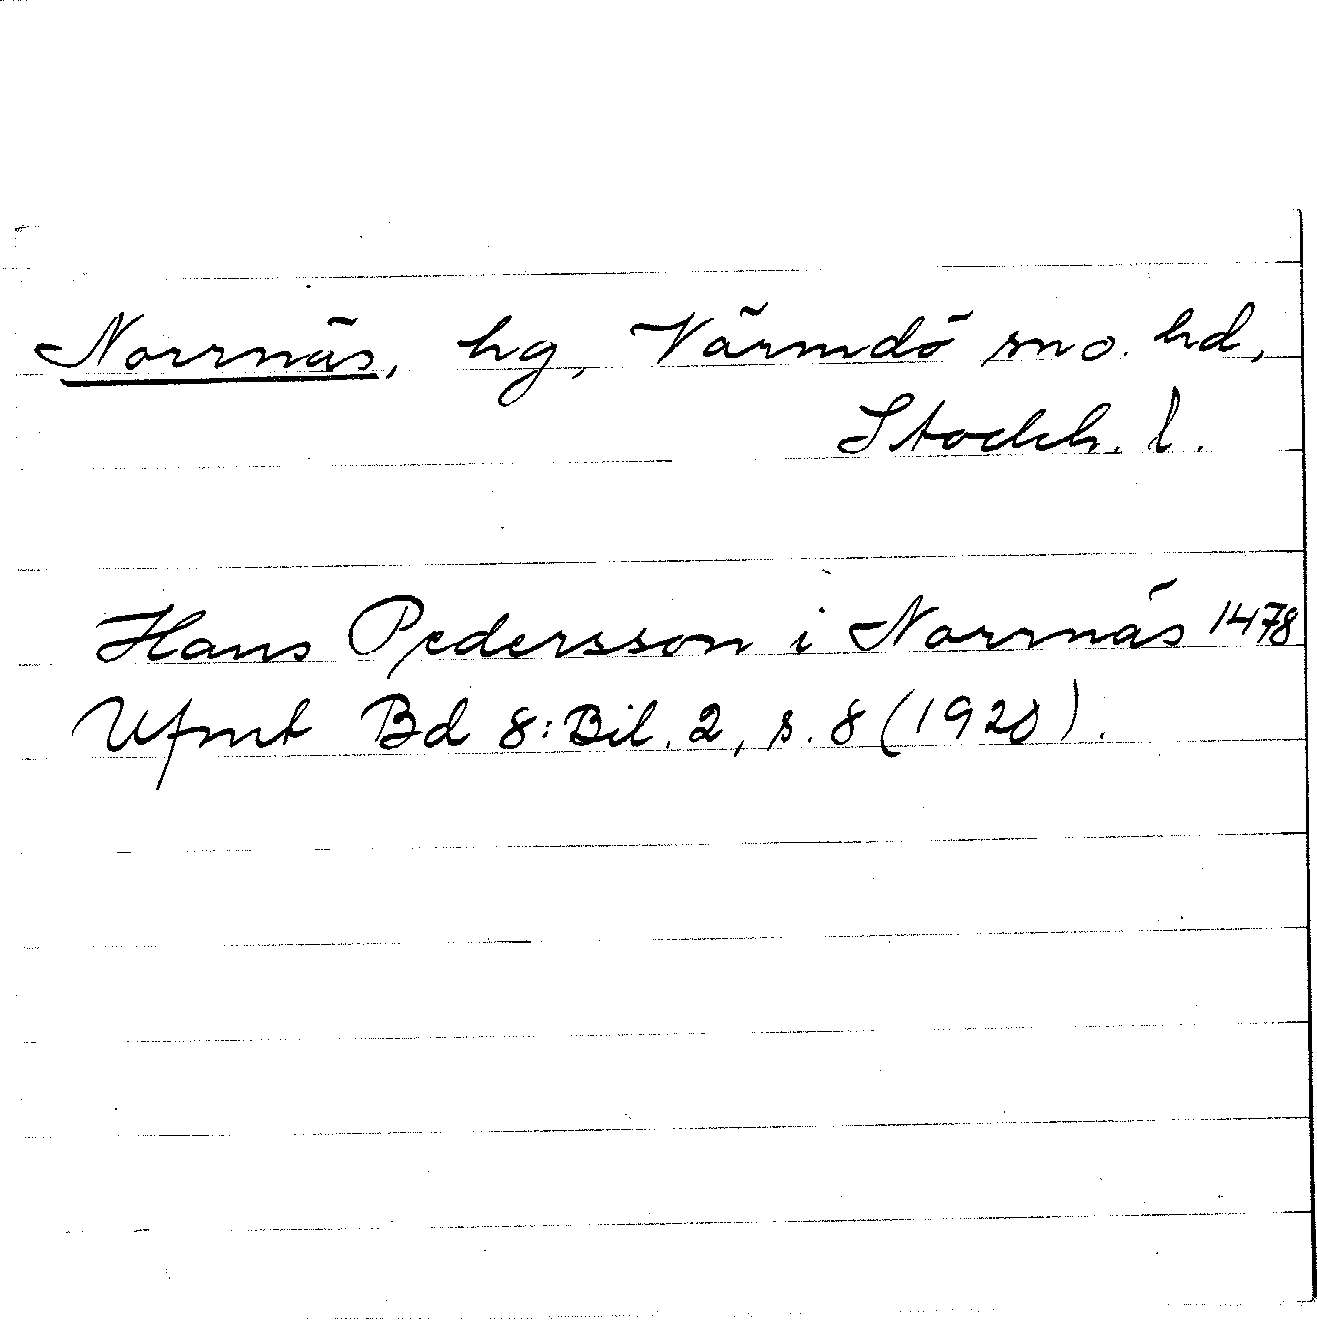 Norrnäs, hg, Värmdö sn o. hd,
Stockh. l.
Hans Pedersson i Norrnäs 1478
Ufmt Bd 8: Bil. 2, s. 8 (1920).